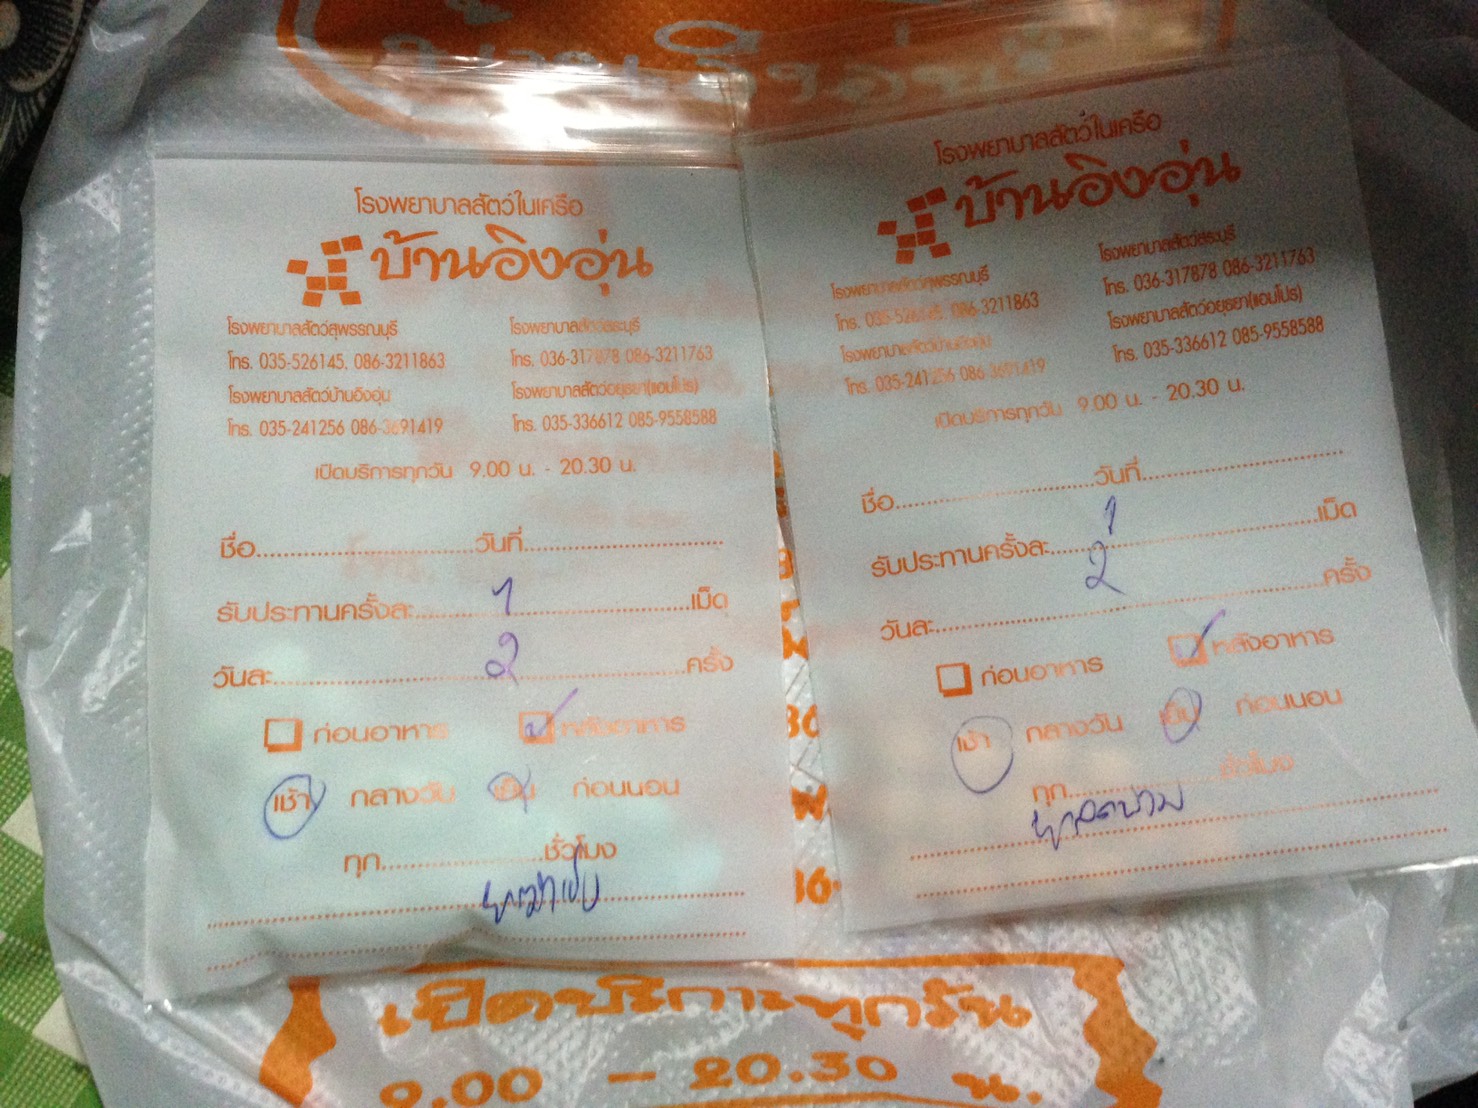 โรงพยาบาลสัตว์ในเครือ
บ้านอิงอุ่น
โรงพยาบาลสัตว์สุพรรณบุรี โรงพยาบาลสัตว์สระบุรี
โทร. 035-526145. 086-3211863 โทร. 036-317878 086-3211763
โรงพยาบาลสัตว์บ้านอิงอุ่น โรงพยาบาลสัตว์อยุธยา(แอมโปร)
โทร. 035-241256 086-3691419 โทร. 035-336612 085-9558588
เปิดบริการทุกวัน 9.00 น. - 20.30 น.
ชื่อ..............................วันที่..............................
รับประทานครั้งละ..........1....................เม็ด
วันละ..............................2....................ครั้ง
ก่อนอาหาร หลังอาหาร
เช้า กลางวัน เย็น ก่อนนอน
ทุก....................ชั่วโมง
โรงพยาบาลสัตว์ในเครือ
บ้านอิงอุ่น
โรงพยาบาลสัตว์สุพรรณบุรี โรงพยาบาลสัตว์สระบุรี
โทร. 035-526145. 086-3211863 โทร. 036-317878 086-3211763
โรงพยาบาลสัตว์บ้านอิงอุ่น โรงพยาบาลสัตว์อยุธยา(แอมโปร)
โทร. 035-241256 086-3691419 โทร. 035-336612 085-9558588
เปิดบริการทุกวัน 9.00 น. - 20.30 น.
ชื่อ..............................วันที่..............................
รับประทานครั้งละ..........1....................เม็ด
วันละ..............................2....................ครั้ง
ก่อนอาหาร หลังอาหาร
เช้า กลางวัน เย็น ก่อนนอน
ทุก....................ชั่วโมง
เปิดบริการทุกวัน
9.00 - 20.30 น.